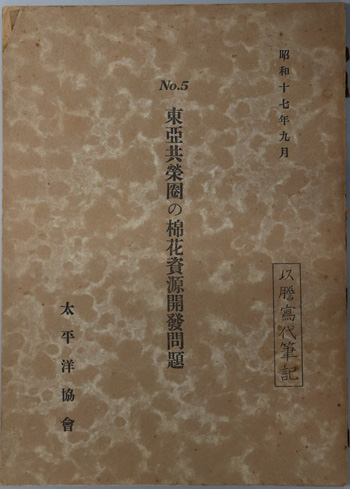 昭和十七年九月
No.5
東亞共榮圈の棉花資源開發問題
以謄寫代筆記
太平洋協會